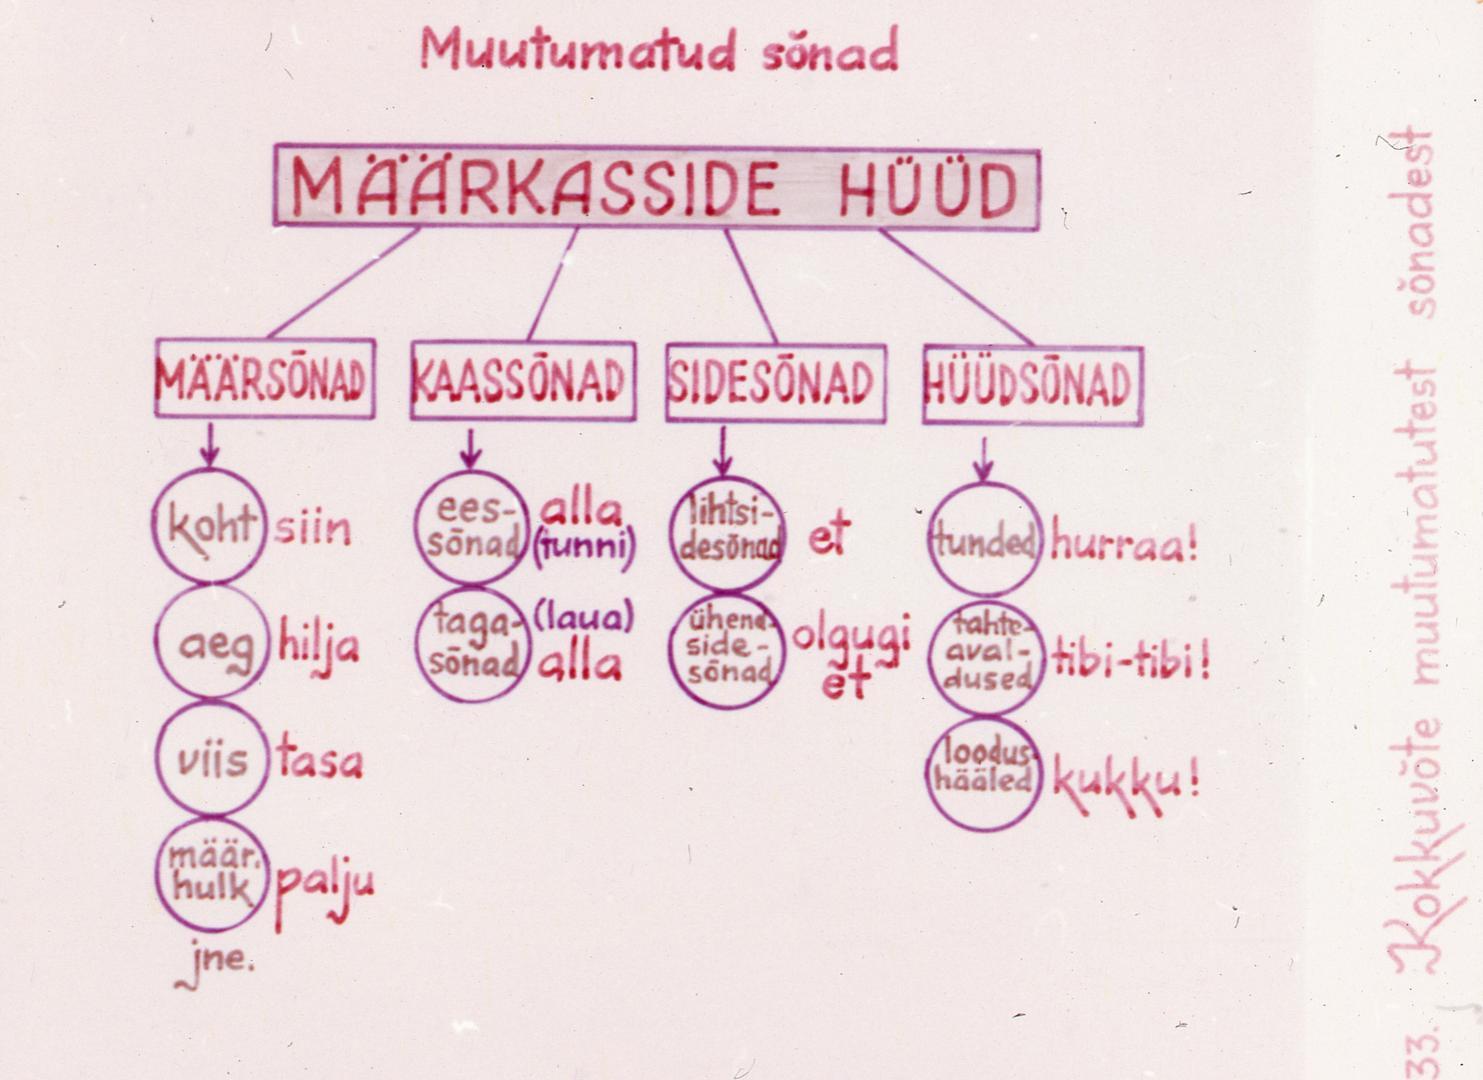 Muutumatud sõnad
MÄÄRKASSIDE HÜÜD
MÄÄRSÕNAD
koht siin
aeg hilja
viis tasa
määr.
hulk palju
jne.
KAASSÕNAD
ees-
sõnad
alla
(tunni)
taga-
sõnad
(laua)
alla
SIDESÕNAD
lihtsi-
desõnad
et
ühend-
side-
sõnad
olgugi
et
HÜÜDSÕNAD
tunded hurraa!
tahte-
aval-
dused
tibi-tibi!
loodus-
hääled
kukku!
33. Kokkuvõte muutumatutest sõnadest